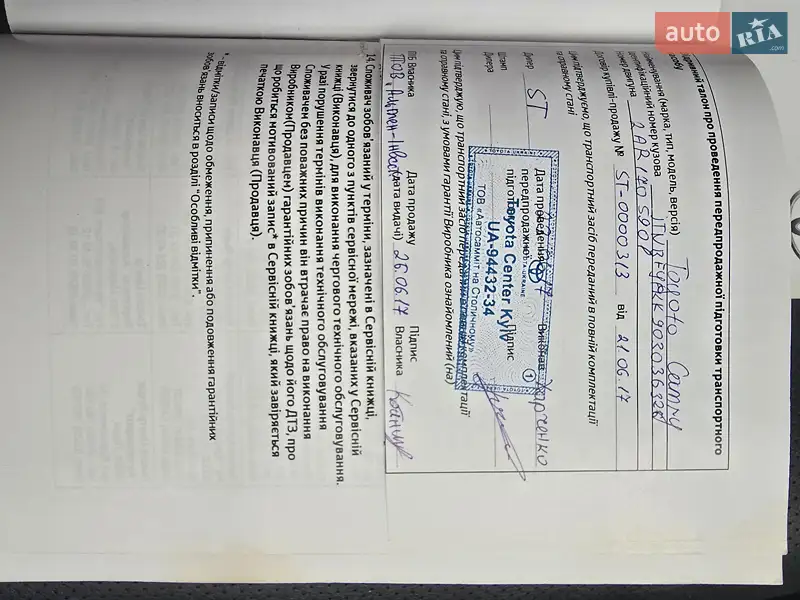 auto RIA .com
Відривний талон про проведення передпродажної підготовки транспортного
засобу
Найменування (марка, тип, модель, версія) Toyota Camry
Ідентифікаційний номер кузова
Номер двигуна 2AR
Договір купівлі-продажу № ST-0000313 від 21.06.17
Цим підтверджуємо, що транспортний засіб переданий в повній комплектації
та справному стані
Дилер ST Дата проведення Виконав Харченко
передпродажної
підготовки Підпис
Штамп
Дилера
Toyota Center Kyiv
UA-94432-34
ТОВ «Автосамміт на Столичному»
Цим підтверджую, що транспортний засіб переданий в комплектації
та справному стані, з умовами гарантії Виробника ознайомлений (на)
ПІБ Власника ТОВ Дата продажу (дата видачі) 26.06.17 Підпис Власника
14. Споживач зобов'язаний у терміни, зазначені в Сервісній книжці,
звернутися до одного з пунктів сервісної мережі, вказаних у Сервісній
книжці (Виконавця), для виконання чергового технічного обслуговування.
У разі порушення термінів виконання технічного обслуговування
Споживачем без поважних причин він втрачає право на виконання
Виробником(Продавцем) гарантійних зобов'язань щодо його ДТЗ, про
що робиться мотивований запис* в Сервісній книжці, який завіряється
печаткою Виконавця (Продавця).
* відмітки/записи щодо обмеження, припинення або подовження гарантійних
зобов'язань вноситься в розділі "Особливі відмітки".